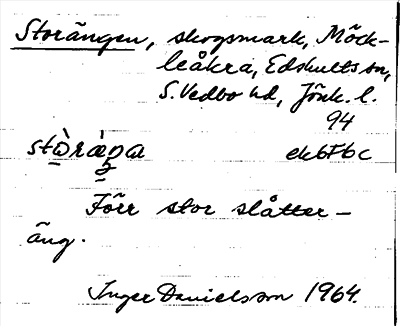 Storängen, skogsmark, Möck-
leåkra, Edshults sn,
S. Vedbo hd, Jönk. l.
94
stòràŋa ek6F6c
Förr stor slåtter-
äng.
Inger Danielsson 1964.